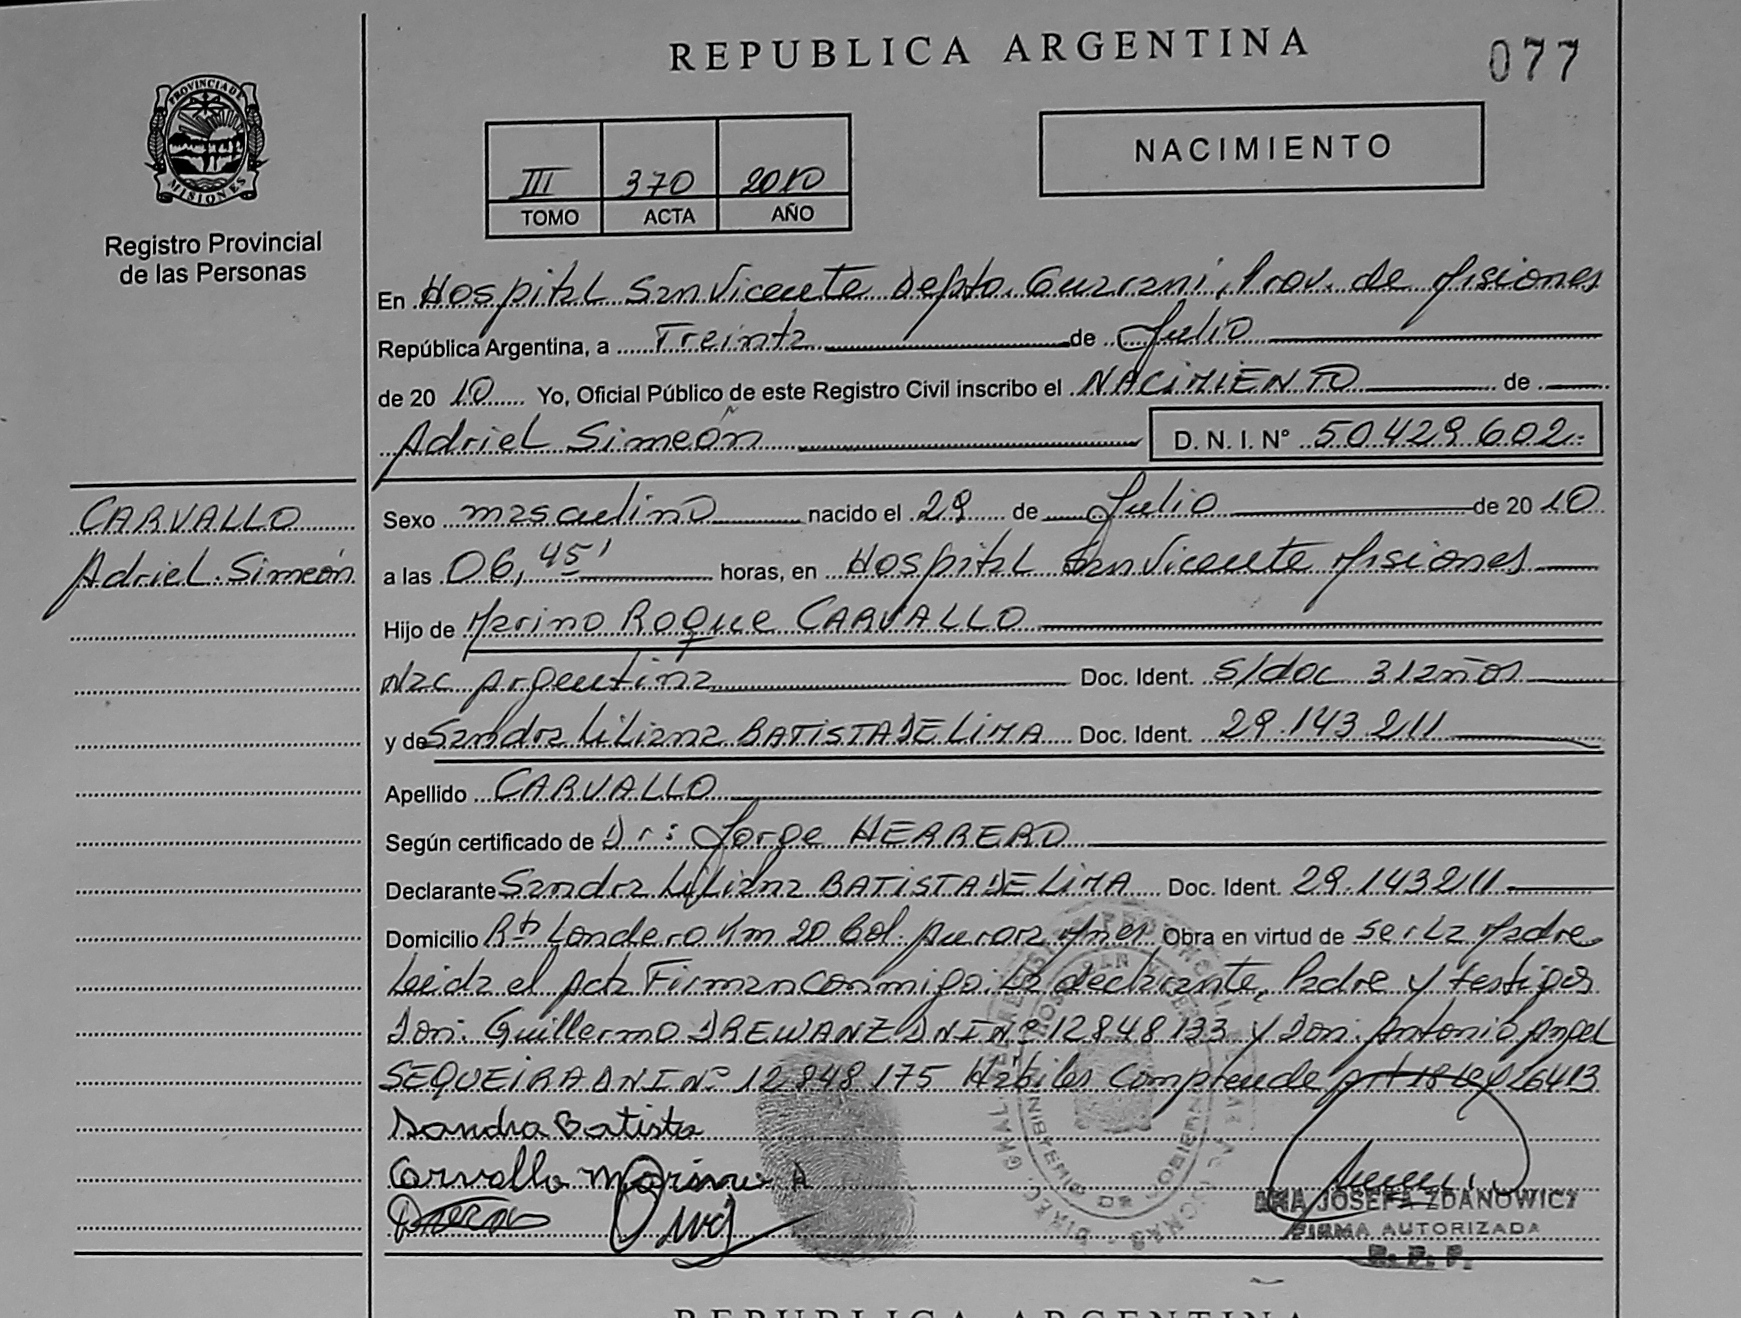 REPUBLICA ARGENTINA
077
PROVINCIA DE
MISIONES
Registro Provincial
de las Personas
III 370 2010
TOMO ACTA AÑO
NACIMIENTO
En Hospital San Vicente Depto. Guarani, Prov. de Misiones
República Argentina, a Treinta de Julio
de 2010 Yo, Oficial Público de este Registro Civil inscribo el NACIMIENTO de
Adriel Simeón D. N. I. Nº 50.429.602.-
CARVALLO
Adriel Simeón
Sexo masculino nacido el 29 de Julio de 2010
a las 06,45' horas, en Hospital San Vicente Misiones
Hijo de Marino Roque CARVALLO
Nac Argentina Doc. Ident. s/doc 31 años
y de Sandra Liliana BATISTA DE LIMA Doc. Ident. 29.143.211
Apellido CARVALLO
Según certificado de Dr: Jorge HERRERO
Declarante Sandra Liliana BATISTA DE LIMA Doc. Ident. 29.143211
Domicilio Londero Km 20 Col. Aurora Mnes Obra en virtud de ser La Madre
Leida el Acta Firman conmigo. La declarante, Padre y testigos
Don: Guillermo DREWANZ DNI Nº 12848133 y Don: Antonio Angel
SEQUEIRA DNI Nº 12848175 Hábiles Comprende Art 18 Ley 26413
Sandra Batista
Carvallo Marino
ANA JOSEFA ZDANOWICZ
FIRMA AUTORIZADA
R. P. P.
REPUBLICA ARGENTINA